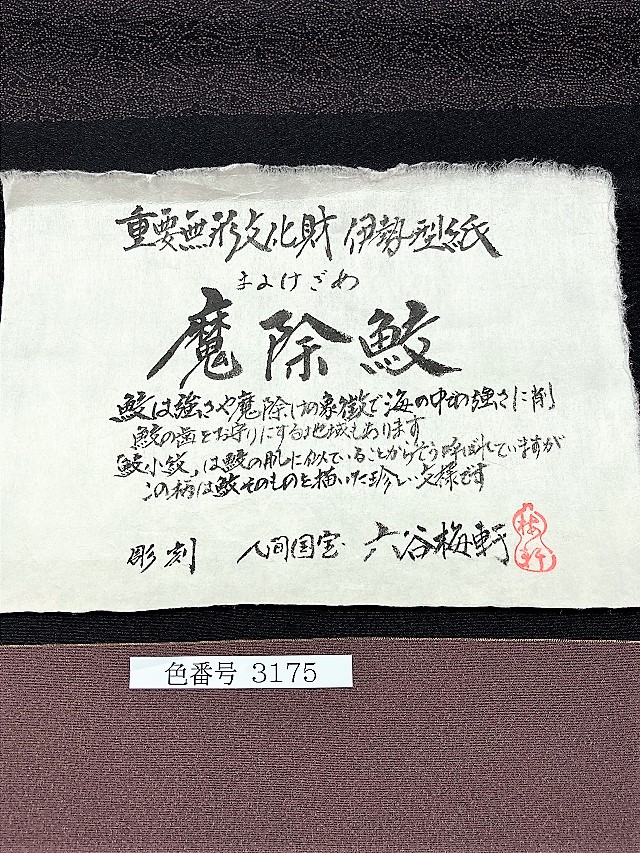 重要無形文化財 伊勢型紙
まよけざめ
魔除鮫
鮫は強さや魔除けの象徴で海の中の強さに削
鮫の歯をお守りにする地域もあります
鮫小紋」は鮫の肌に似ていることからそう呼ばれていますが
この柄は鮫そのものを描いた珍しい文様です
彫刻 人間国宝 六谷梅軒
梅軒
色番号 3175